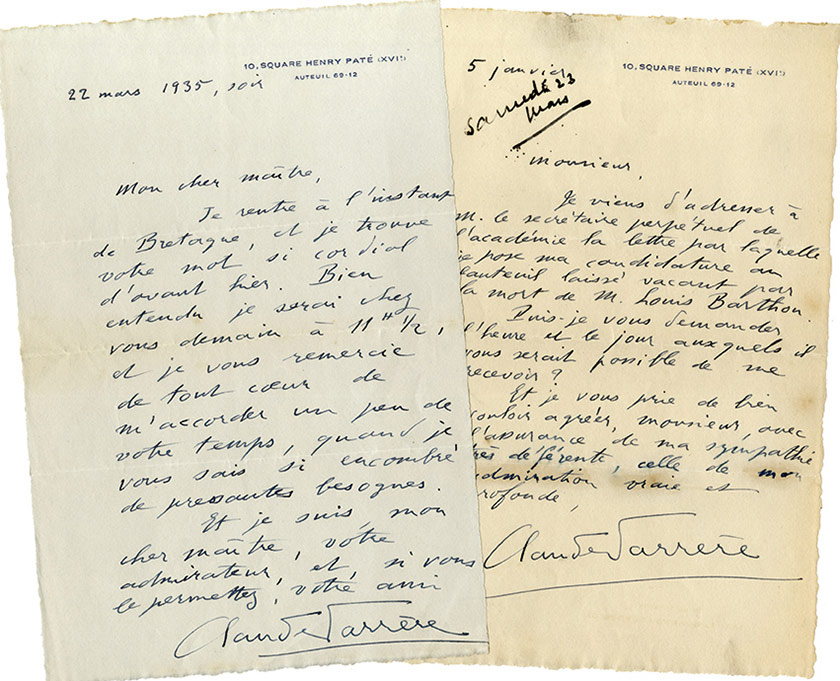 10, SQUARE HENRY PATÉ (XVIᵉ)
AUTEUIL 69-12
22 mars 1935, soir
Mon cher maître,
Je rentre à l'instant
de Bretagne, et je trouve
votre mot si cordial
d'avant hier. Bien
entendu je serai chez
vous demain à 11ʰ 1/2,
et je vous remercie
de tout cœur de
m'accorder un peu de
votre temps, quand je
vous sais si encombré
de pressantes besognes.
Et je suis, mon
cher maître, votre
admirateur, et, si vous
le permettez, votre ami
Claude Farrère
10, SQUARE HENRY PATÉ (XVIᵉ)
AUTEUIL 69-12
5 janvier
Samedi 23
mars
Monsieur,
Je viens d'adresser à
M. le secrétaire perpétuel de
l'académie la lettre par laquelle
je pose ma candidature au
fauteuil laissé vacant par
la mort de M. Louis Barthou.
Puis-je vous demander
l'heure et le jour auxquels il
vous serait possible de me
recevoir ?
Et je vous prie de bien
vouloir agréer, monsieur, avec
l'assurance de ma sympathie
très déférente, celle de mon
admiration vraie et
profonde,
Claude Farrère